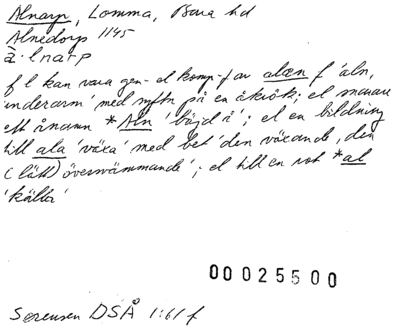 Alnarp, Lomma, Bara hd
Alnedorp 1145
à·lnarp
f l kan vara gen- el komp-f av alæn f 'aln,
underarm' med syftn på en åkrök; el snarare
ett ånamn *Aln 'böjd å'; el en bildning
till ala 'växa' med bet 'den växande, den
(lätt) översvämmande'; el till en rot *al
'källa'
00025500
Sørensen DSÅ 1:61 f